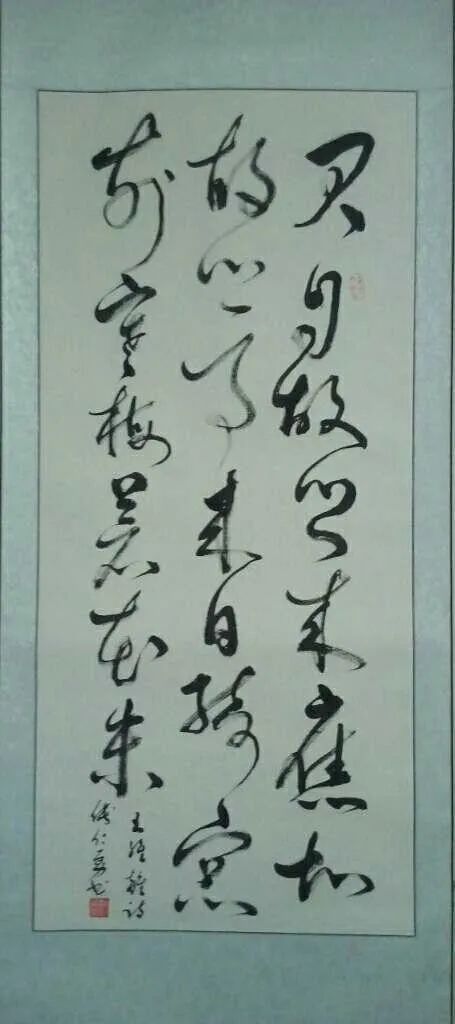 君自故鄉來應知
故鄉事來日綺窓
前寒梅著花未
王維雜詩
書